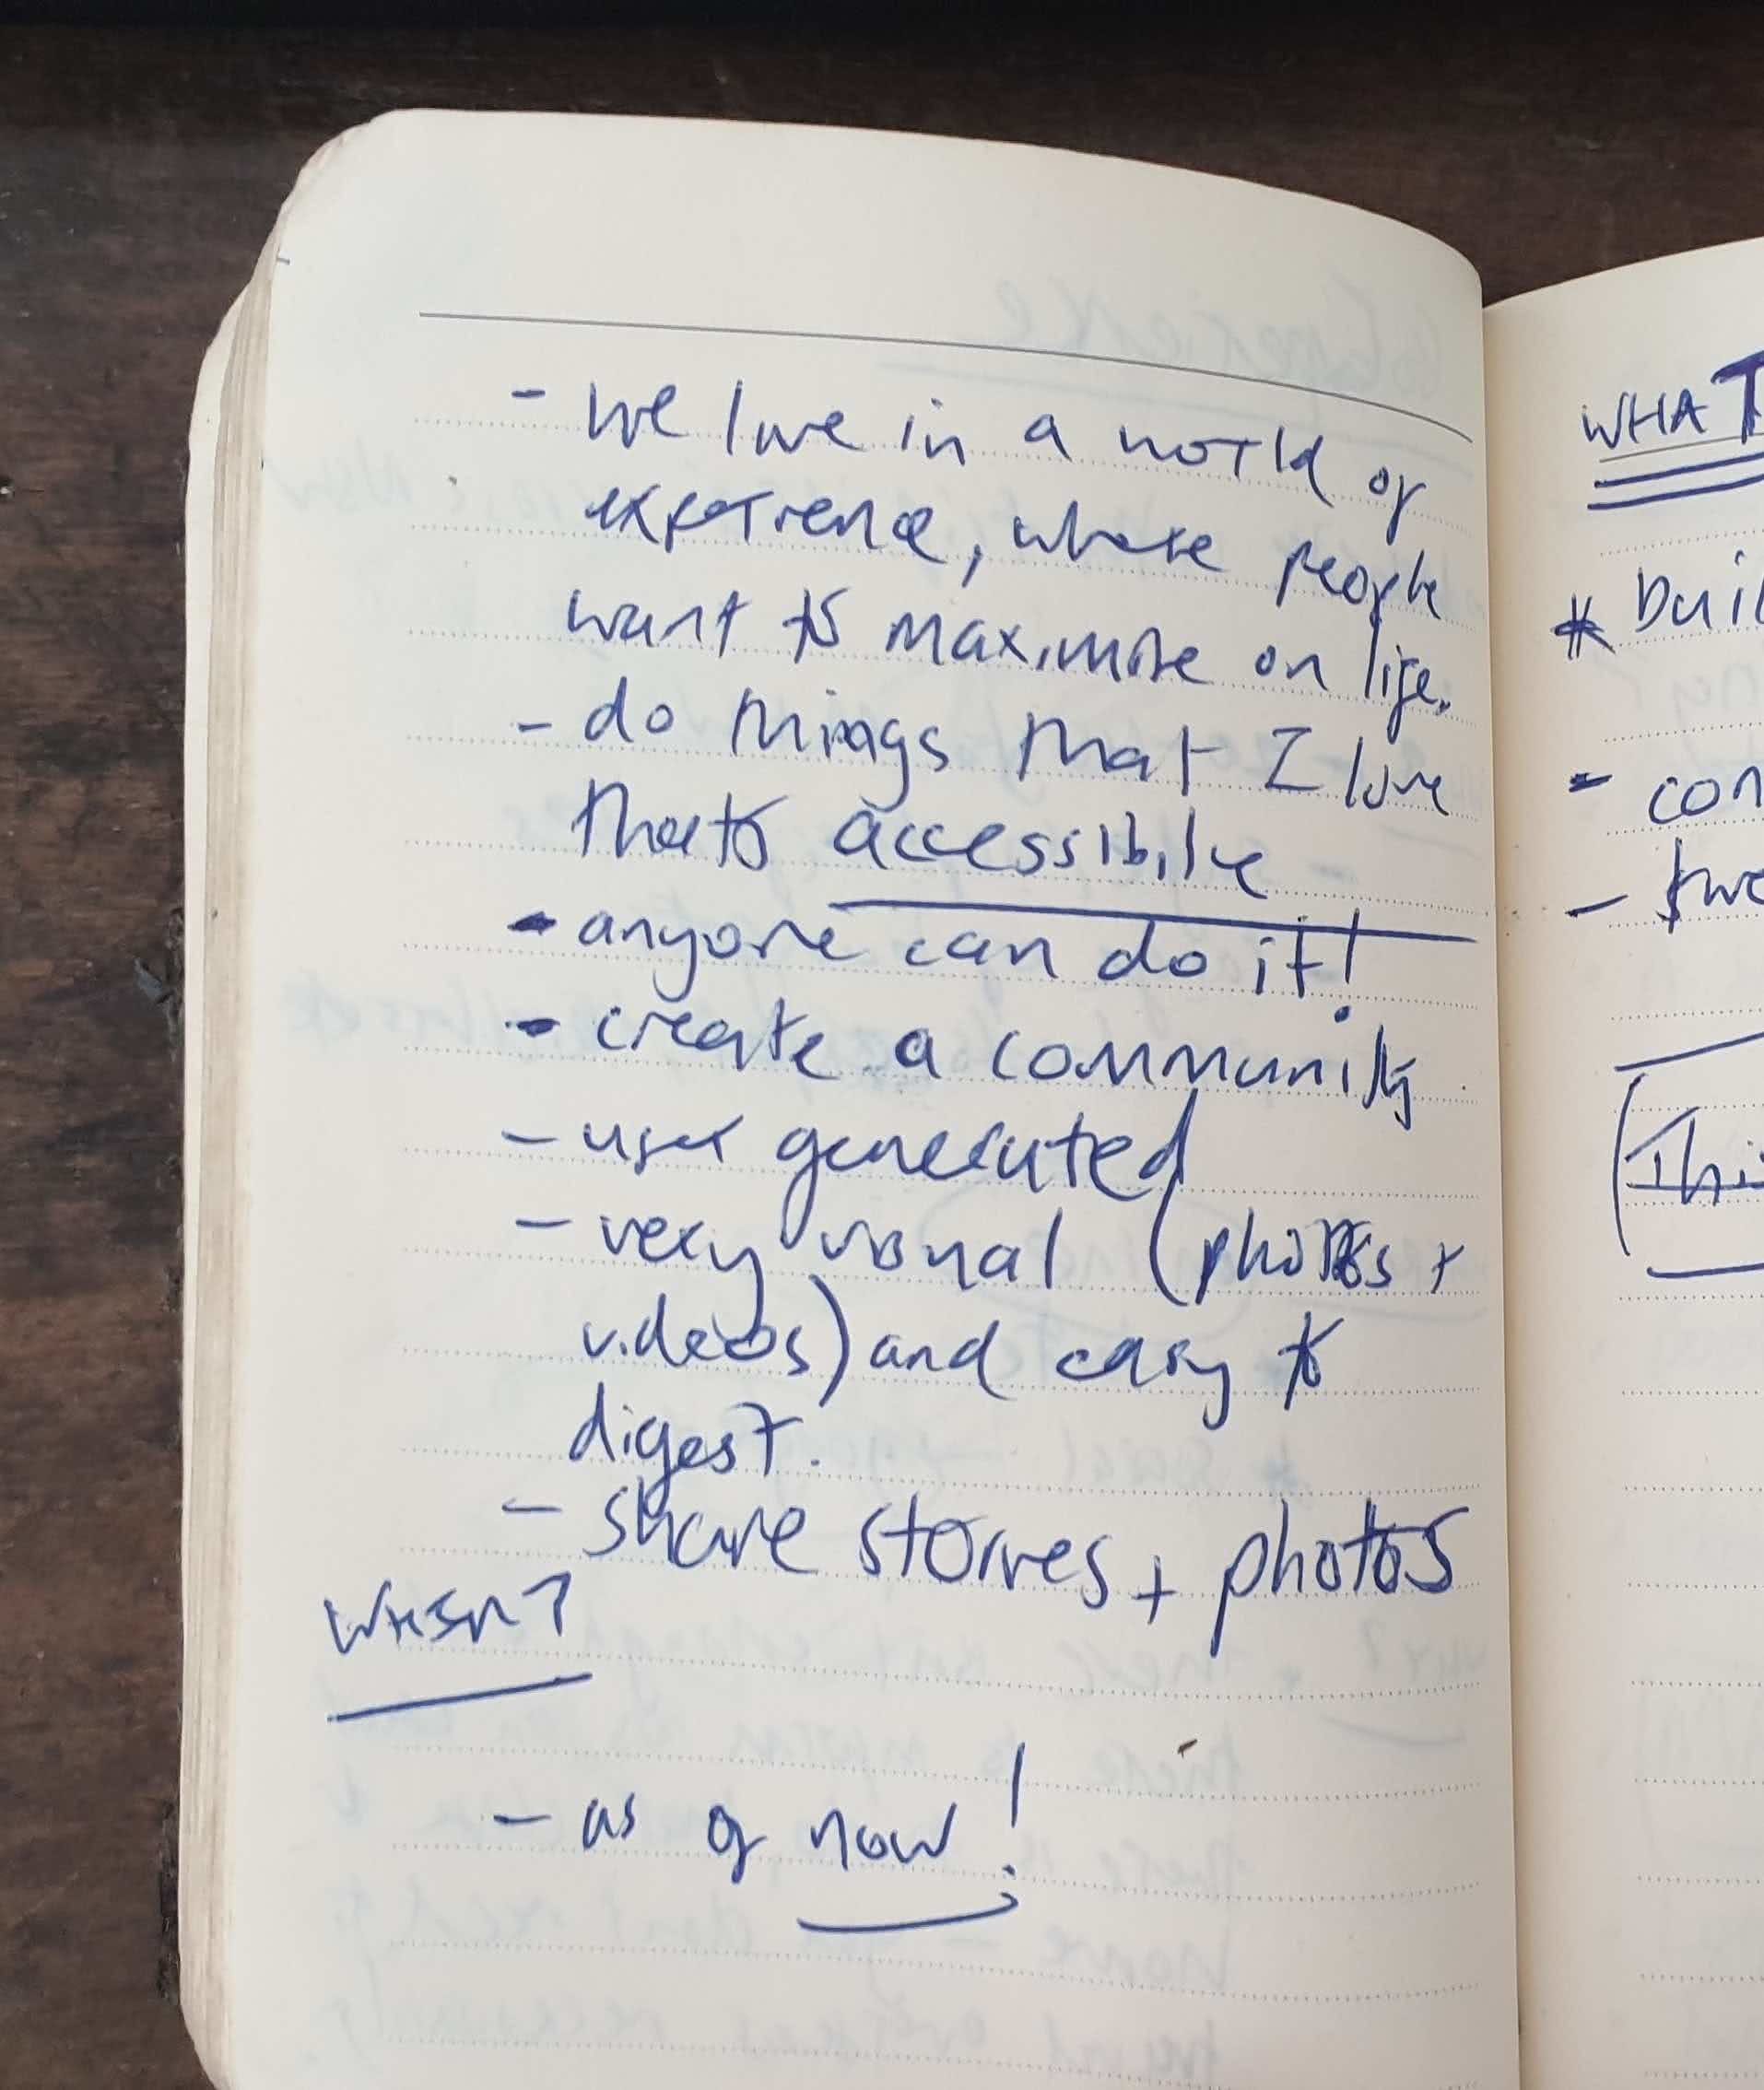 - We live in a world of
experience, where people
want to maximise on life.
- do things that I love
that's accessible
- anyone can do it!
- create a community
- user generated
- very visual (photos +
videos) and easy to
digest.
- share stories + photos
WHEN?
- as of now!
WHAT
* buil
- con
-
This